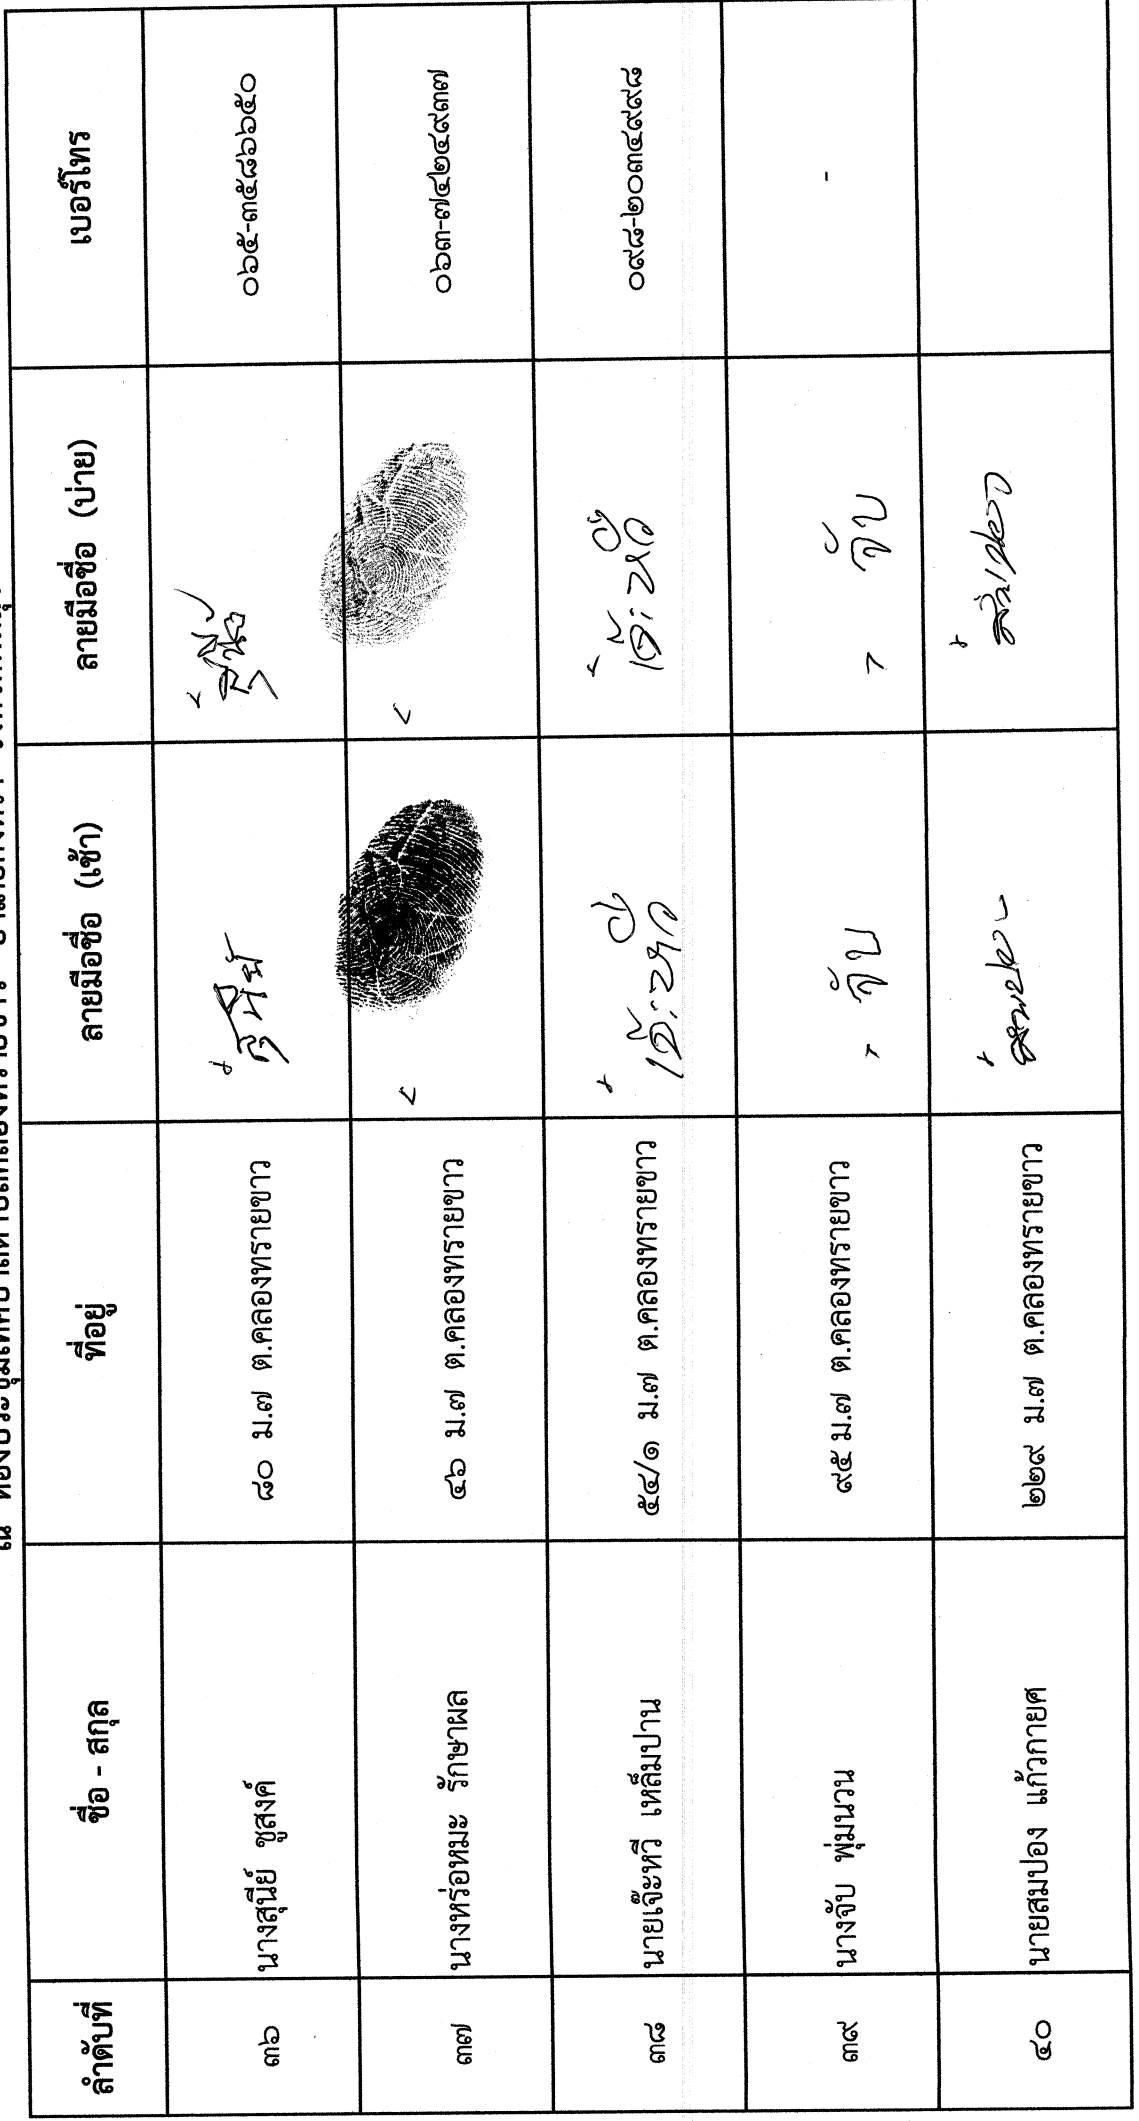 ณ ห้องประชุมเทศบาลตำบลคลองทรายขาว
ลำดับที่ ชื่อ - สกุล ที่อยู่ ลายมือชื่อ (เช้า) ลายมือชื่อ (บ่าย) เบอร์โทร
๓๖ นางสุนีย์ ชูสงค์ ๘๐ ม.๗ ต.คลองทรายขาว สุนีย์ สุนีย์ ๐๖๕-๓๕๘๖๖๕๐
๓๗ นางหร่อหมะ รักษาผล ๔๖ ม.๗ ต.คลองทรายขาว ๐๖๓-๗๔๒๔๙๓๗
๓๘ นายเจ๊ะหวี เหล็มปาน ๕๔/๑ ม.๗ ต.คลองทรายขาว เจ๊ะหวี เจ๊ะหวี ๐๙๘-๒๐๓๔๙๙๘
๓๙ นางจับ พุ่มนวน ๙๕ ม.๗ ต.คลองทรายขาว จับ จับ -
๔๐ นายสมปอง แก้วกายศ ๒๒๙ ม.๗ ต.คลองทรายขาว สมปอง สมปอง